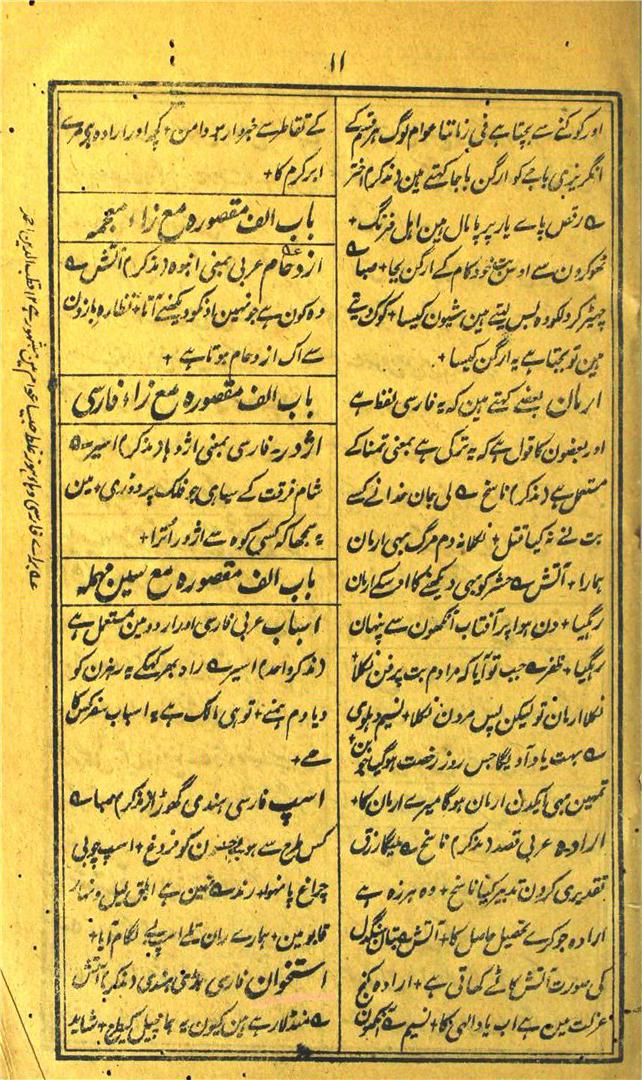 ۱۱
اور کوکنے سے بجتا ہے فی زماننا عوام لوگ ہر قسم کے
انگریزی باجے کو ارگن باجا کہتے ہین (مذکر) اختر
رقص پاے یار پر پامال ہین اہل فرنگ +
ٹھوکرون سے اوس بت خودکام کے ارگن بجا + صبا
چھیڑ کر دلکو وہ بس لیتے ہین شیون کیسا + کوک دیتے
ہین تو بجتا ہے یہ ارگن کیسا +
ارمان بعضے کہتے ہین کہ یہ فارسی لفظ ہے
اور بعضون کا قول ہے کہ یہ ترکی ہے بمعنی تمنا کے
مستعمل ہے (مذکر) ناسخ لی جان خدا نے کسے
بت نے نہ کیا قتل + نکلا نہ دم مرگ بھی ارمان
ہمارا + آتش حشر کو بھی دیکھنے کا اوسکے ارمان
رہگیا + دن ہوا پر آفتاب آنکھون سے پنہان
رہگیا + ظفر جب تو آیا کہ مرا دم بت پرفن نکلا +
نکلا ارمان تو لیکن پس مردن نکلا + نسیم دہلوی
بہت یاد آویگا جس روز رخصت ہوگیا
تمہین بھی ایکدن ارمان ہوگا میرے ارمان کا +
ارادہ عربی قصد (مذکر) ناسخ ملیگا رزق
تقدیری کرون تدبیر کیا ناسخ + وہ ہرزہ ہے
ارادہ جو کرے تحصیل حاصل کا + آتش بتان سنگدل
کی صورت آتش کاٹے کھاتی ہے + ارادہ کنج
عزلت مین ہے اب یاد الہی کا + نسیم
کے تقاطر سے خبردار ہو دامن + کچھ اور ارادہ ہے مرے
ابر کرم کا +
باب الف مقصورہ مع زاء معجمہ
ازدحام عربی بمعنی انبوہ (مذکر) آتش
وہ کون ہے جو نہین اوسکو دیکھنے آتا + نظارہ بازون
سے اک ازدحام ہوتا ہے +
باب الف مقصورہ مع زاء فارسی
اژدر یہ فارسی بمعنی اژدہا (مذکر) اسیر
شام فرقت کے سیاہی جو فلک پر دوڑی + مین
یہ سمجھا کہ کسی کوہ سے اژدر اُترا +
باب الف مقصورہ مع سین مہملہ
اسباب عربی فارسی اور اردو مین مستعمل ہے
(مذکر واحد) اسیر راہ بھر کہکے یہ رہزن کو
دیا دم ہمنے + تو ہی مالک ہے یہ اسباب سفر کس کا
ہے +
اسپ فارسی ہندی گھوڑا (مذکر) صبا
کس طرح سے ہو کو فروغ + اسپ چوبی
چراغ پا نہوا + رند نہین ہے ابلق لیل و نہار
قابو مین + ہمارے ران تلے اسپ بے لگام آیا +
استخوان فارسی ہڈی ہندی (مذکر) آتش
منڈلا رہے ہین کیون یہ ہما چیل کیطرح + شاید